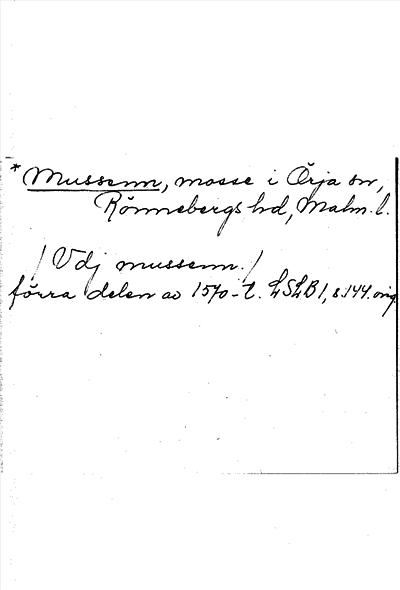 * Mussenn, mosse i Örja sn,
Rönnebergs hd, Malm. l.
/Vdj mussenn./
förra delen av 1570-t. LSLB 1, s. 144. orig.